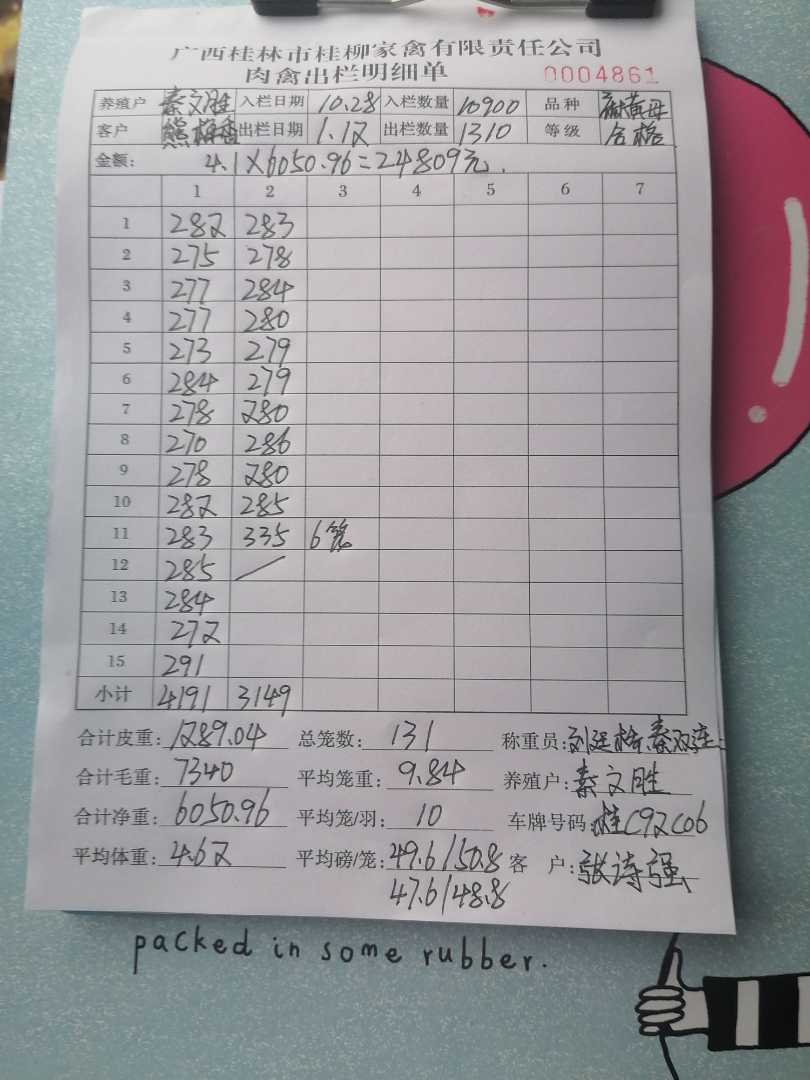 广西桂林市桂柳家禽有限责任公司
肉禽出栏明细单 0004861
养殖户 秦文胜 入栏日期 10.28 入栏数量 10900 品种 麻黄母
客户 熊梅香 出栏日期 1.12 出栏数量 1310 等级 合格
金额: 4.1×6050.96=24809元.
1 2 3 4 5 6 7
1 282 283
2 275 278
3 277 284
4 277 280
5 273 279
6 284 279
7 278 280
8 270 286
9 278 280
10 282 285
11 283 335 6笼
12 285
13 284
14 272
15 291
小计 4191 3149
合计皮重: 1289.04 总笼数: 131 称重员:
合计毛重: 7340 平均笼重: 9.84 养殖户: 秦文胜
合计净重: 6050.96 平均笼/羽: 10 车牌号码: 桂C92C06
平均体重: 4.62 平均磅/笼: 49.6/50.8 客 户: 张诗强
47.6/48.8
packed in some rubber.